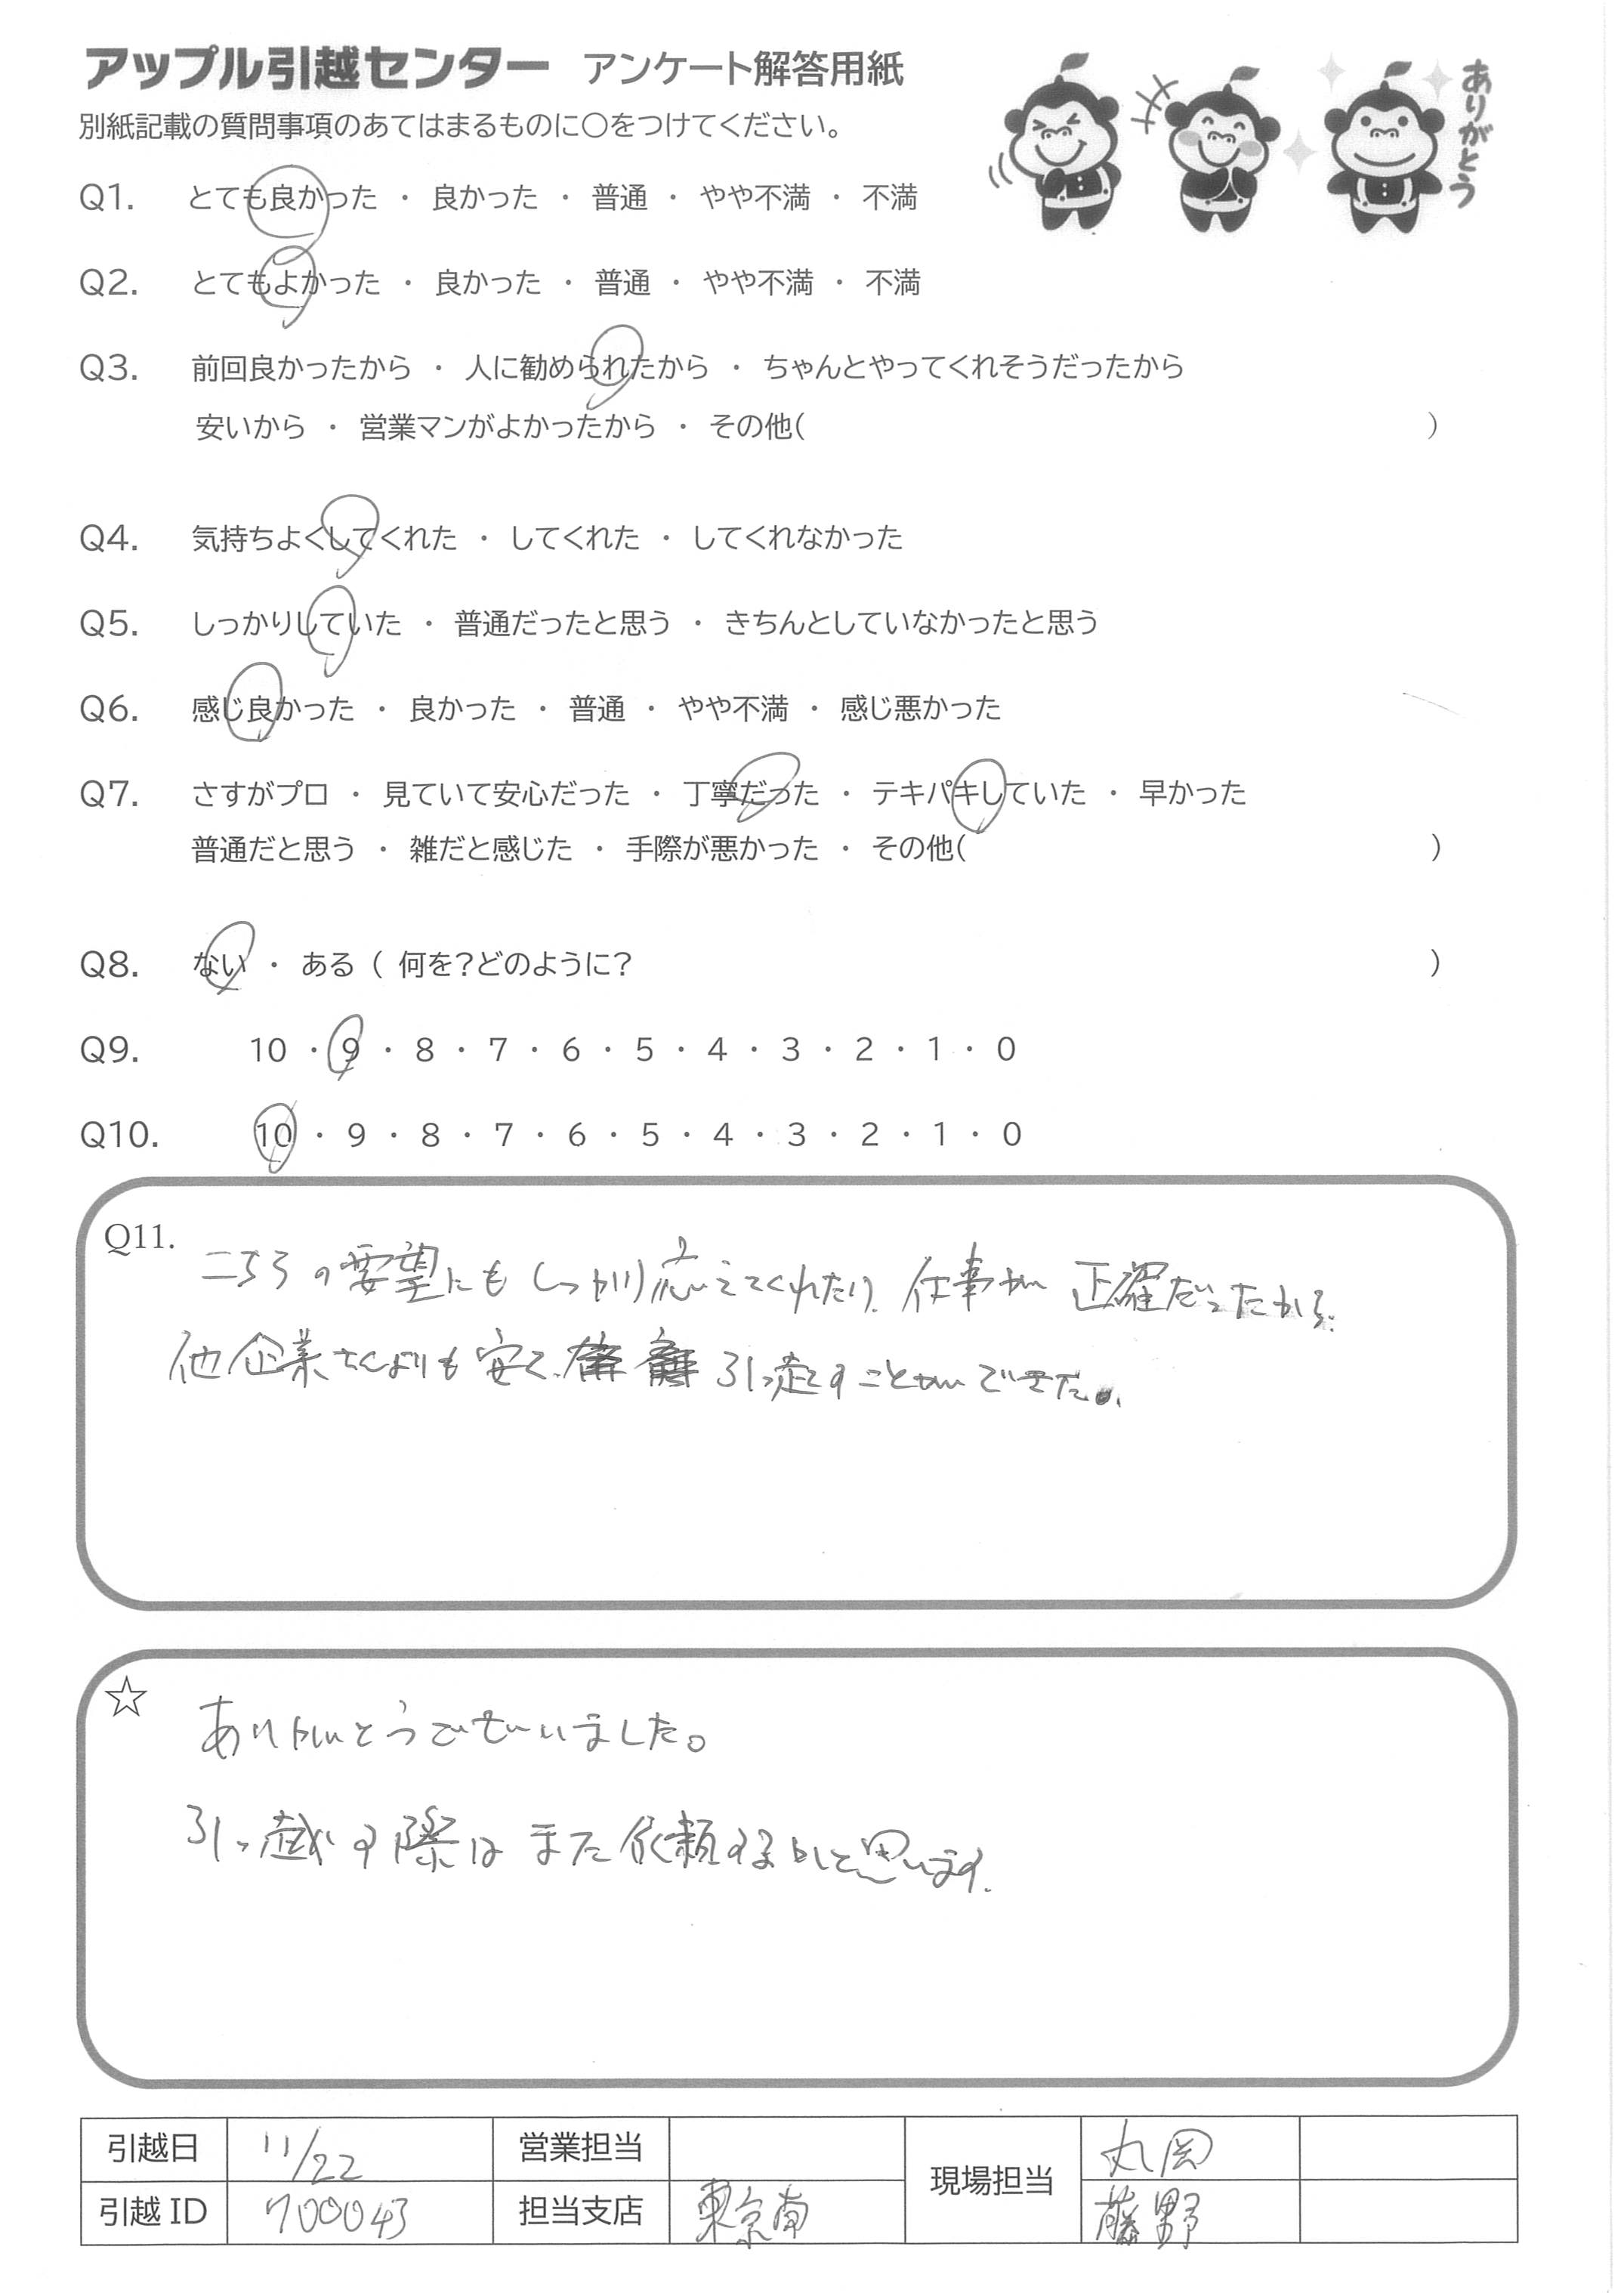 アップル引越センター アンケート解答用紙
ありがとう
別紙記載の質問事項のあてはまるものに〇をつけてください。
Q1. とても良かった ・ 良かった ・ 普通 ・ やや不満 ・ 不満
Q2. とてもよかった ・ 良かった ・ 普通 ・ やや不満 ・ 不満
Q3. 前回良かったから ・ 人に勧められたから ・ ちゃんとやってくれそうだったから
安いから ・ 営業マンがよかったから ・ その他( )
Q4. 気持ちよくしてくれた ・ してくれた ・ してくれなかった
Q5. しっかりしていた ・ 普通だったと思う ・ きちんとしていなかったと思う
Q6. 感じ良かった ・ 良かった ・ 普通 ・ やや不満 ・ 感じ悪かった
Q7. さすがプロ ・ 見ていて安心だった ・ 丁寧だった ・ テキパキしていた ・ 早かった
普通だと思う ・ 雑だと感じた ・ 手際が悪かった ・ その他( )
Q8. ない ・ ある ( 何を?どのように? )
Q9. 10 ・ 9 ・ 8 ・ 7 ・ 6 ・ 5 ・ 4 ・ 3 ・ 2 ・ 1 ・ 0
Q10. 10 ・ 9 ・ 8 ・ 7 ・ 6 ・ 5 ・ 4 ・ 3 ・ 2 ・ 1 ・ 0
Q11. こちらの要望にもしっかり応えてくれたり、仕事が正確だったから。
他企業さんよりも安く、引っ越すことができた。
☆ ありがとうございました。
引っ越す際はまた依頼するかと思います。
引越日 11/22 営業担当 現場担当 丸岡
引越ID 700043 担当支店 東京南 藤野